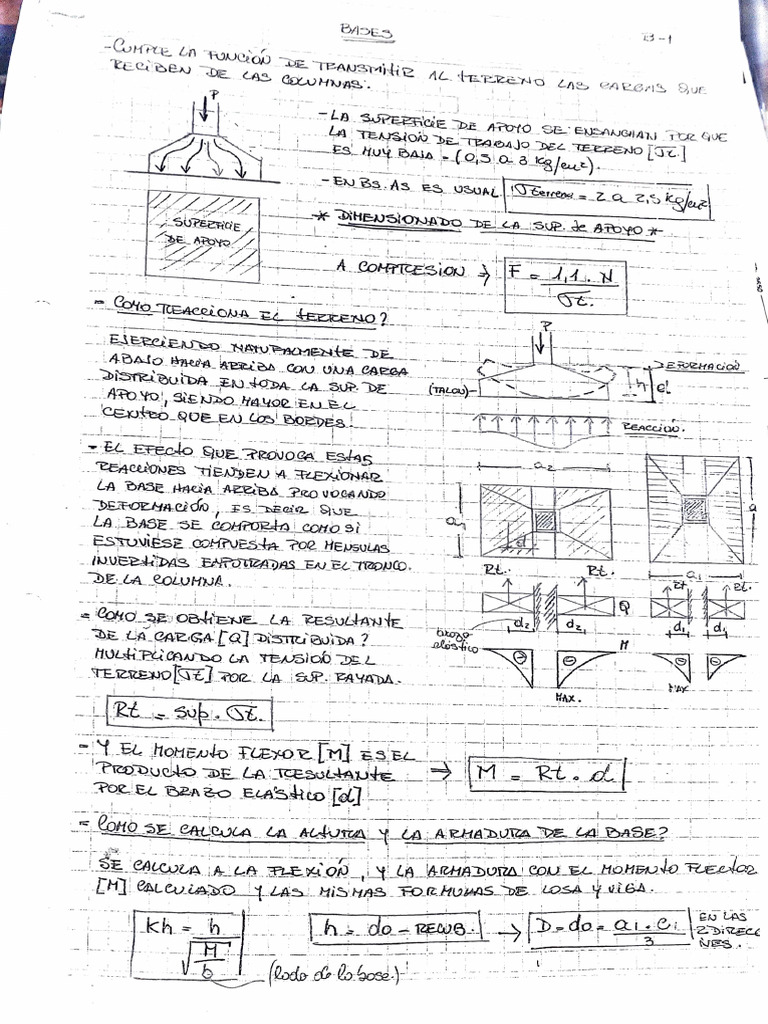 BASES
B-1
- CUMPLE LA FUNCIÓN DE TRANSMITIR AL TERRENO LAS CARGAS QUE
RECIBEN DE LAS COLUMNAS.
P
- LA SUPERFICIE DE APOYO SE ENSANCHAN POR QUE
LA TENSIÓN DE TRABAJO DEL TERRENO [σt.]
ES MUY BAJA = (0,5 a 3 kg/cm²).
- EN BS. AS ES USUAL σterreno = 2 a 2,5 kg/cm²
SUPERFICIE
DE APOYO
* DIMENSIONADO DE LA SUP. de APOYO *
A COMPRESION → F = 1,1 . N
σt.
= COMO REACCIONA EL TERRENO?
EJERCIENDO NATURALMENTE DE
ABAJO HACIA ARRIBA CON UNA CARGA
DISTRIBUIDA EN TODA LA SUP. DE
APOYO, SIENDO MAYOR EN EL
CENTRO QUE EN LOS BORDES.
P
DEFORMACIÓN
(TALON)
h
d
REACCIÓN.
- EL EFECTO QUE PROVOCA ESTAS
REACCIONES TIENDEN A FLEXIONAR
LA BASE HACIA ARRIBA PROVOCANDO
DEFORMACIÓN, ES DECIR QUE
LA BASE SE COMPORTA COMO SI
ESTUVIESE COMPUESTA POR MENSULAS
INVERTIDAS EMPOTRADAS EN EL TRONCO.
DE LA COLUMNA.
a2
a1
d
a1
Rt. Rt. Rt Rt.
Q
d2 d2 d1 d1
brazo
elástico
M
MAX. MAX
= COMO SE OBTIENE LA RESULTANTE
DE LA CARGA [Q] DISTRIBUIDA?
MULTIPLICANDO LA TENSIÓN DEL
TERRENO [σt] POR LA SUP. RAYADA.
Rt = sup . σt.
- Y EL MOMENTO FLEXOR [M] ES EL
PRODUCTO DE LA RESULTANTE
POR EL BRAZO ELASTICO [d]
→ M = Rt . d
= COMO SE CALCULA LA ALTURA Y LA ARMADURA DE LA BASE?
SE CALCULA A LA FLEXIÓN, Y LA ARMADURA CON EL MOMENTO FLECTOR
[M] CALCULADO Y LAS MISMAS FORMULAS DE LOSA Y VIGA.
Kh = h
√ M
b
(lado de la base)
h = do - RECUB.
→ D = do = a1 . c1
3
EN LAS
2 DIRECC
NES.